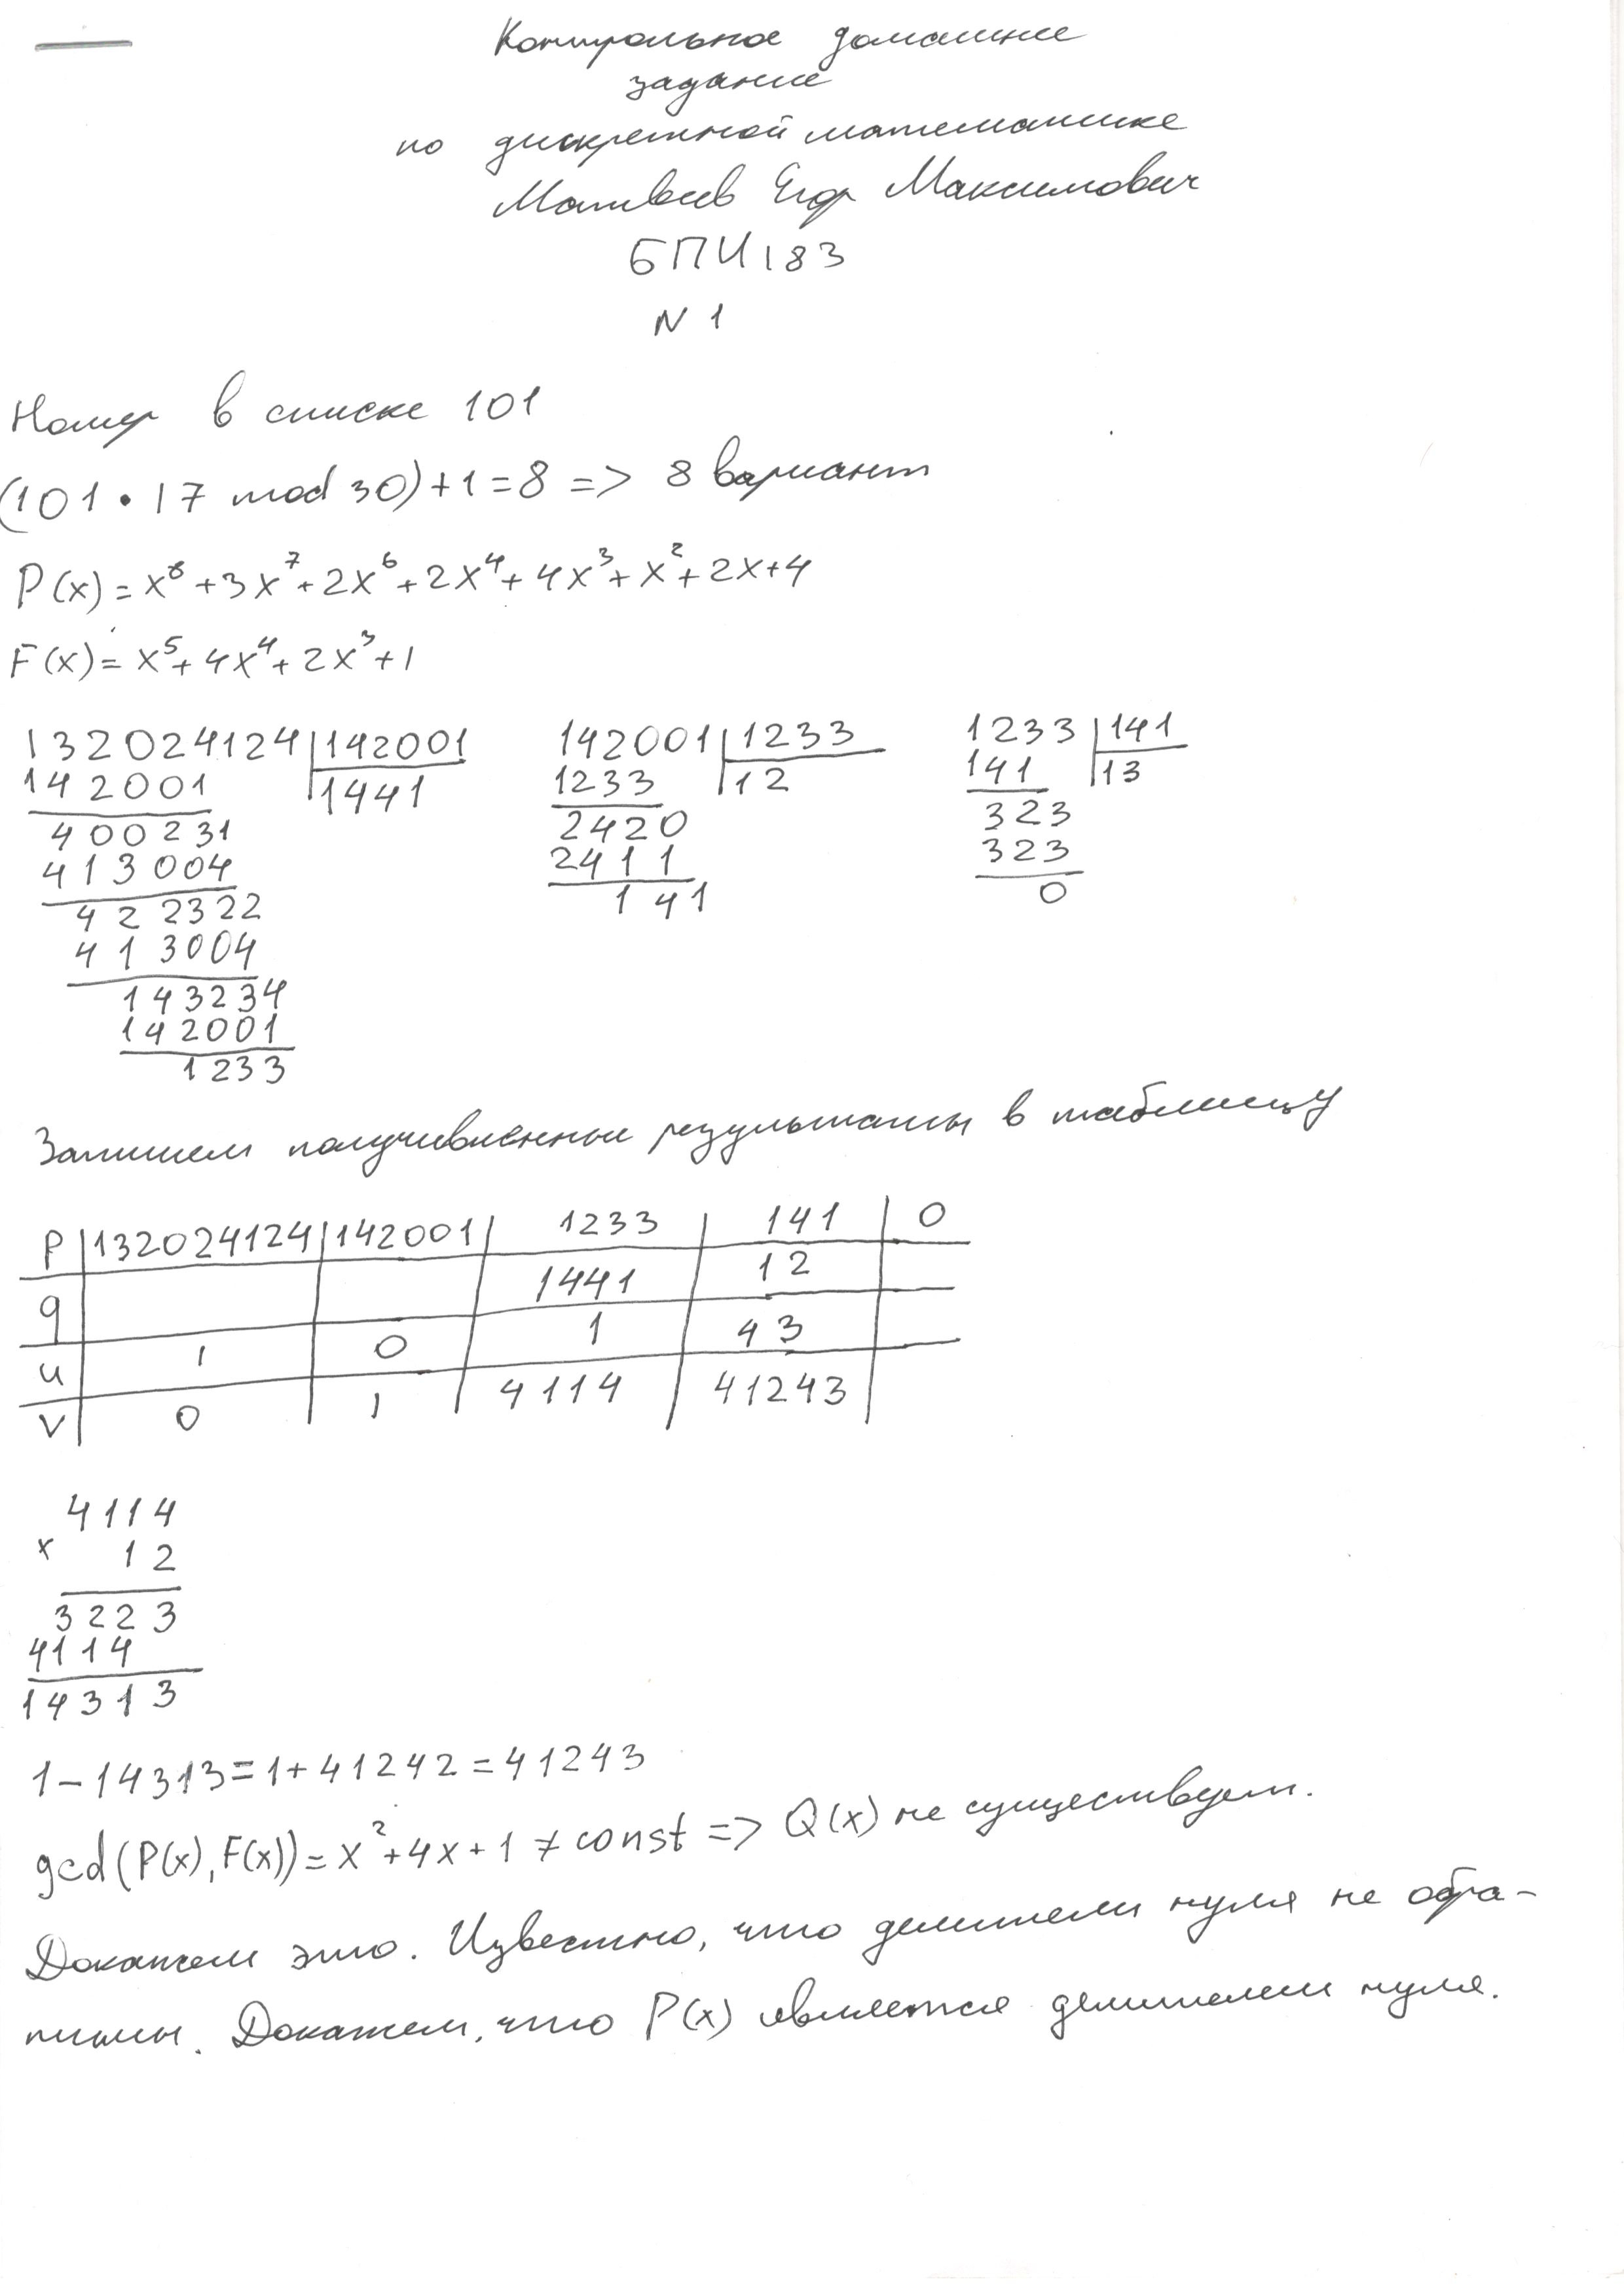 Контрольное домашнее
задание
по дискретной математике
Матвеев Егор Максимович
БПИ183
N 1
Номер в списке 101
(101 • 17 mod 30) + 1 = 8 => 8 вариант
P(x) = x⁸ + 3x⁷ + 2x⁶ + 2x⁴ + 4x³ + x² + 2x + 4
F(x) = x⁵ + 4x⁴ + 2x³ + 1
132024124 | 142001
142001 | 1441
400231
413004
422322
413004
143234
142001
1233
142001 | 1233
1233 | 12
2420
2411
141
1233 | 141
141 | 13
323
323
0
Запишем получившиеся результаты в таблицу
P | 132024124 | 142001 | 1233 | 141 | 0
q | | | 1441 | 12 |
u | 1 | 0 | 1 | 43 |
v | 0 | 1 | 4114 | 41243 |
4114
x 12
3223
4114
14313
1 - 14313 = 1 + 41242 = 41243
gcd(P(x), F(x)) = x² + 4x + 1 ≠ const => Q(x) не существует.
Докажем это. Известно, что делители нуля не обра-
тимы. Докажем, что P(x) является делителем нуля.